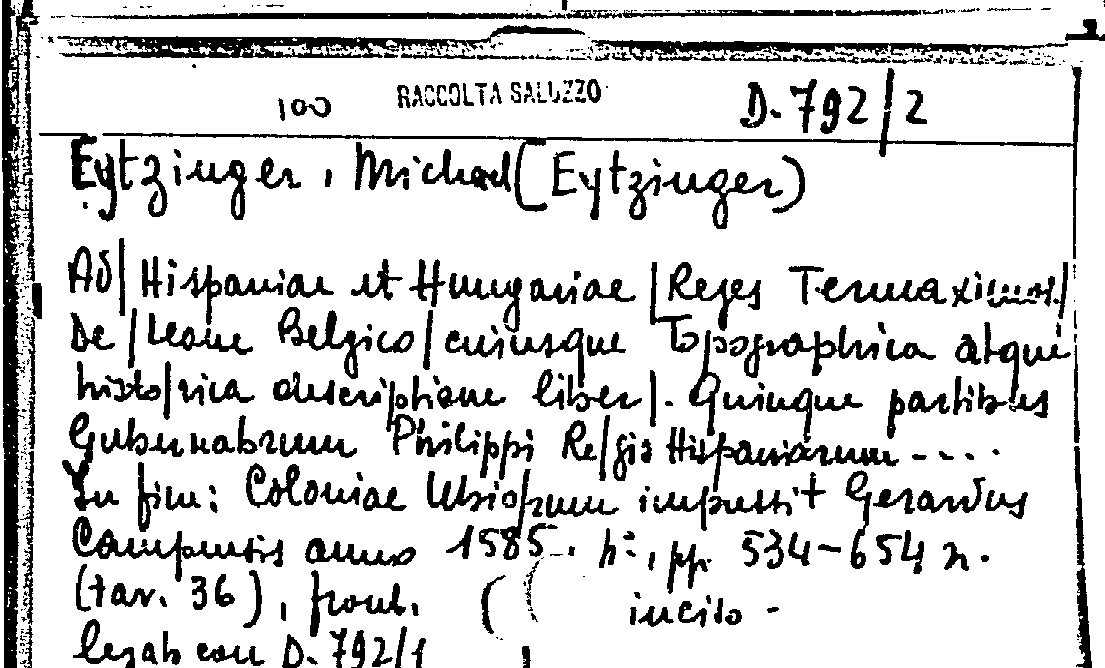 100 RACCOLTA SALUZZO D. 792/2
Eytzinger, Michael (Eytzinger)
Ad/Hispaniae et Hungariae/Reges Termaximos/
De/Leone Belgico/eiusque Topographica atque
histo/rica descriptione liber/. Quinque partibus
Gubernatorum Philippi Re/gis Hispaniarum ----.
In fin: Coloniae Ubio/rum impressit Gerardus
Campensis anno 1585. pp. 534-654 n.
(tav. 36), front. inciso -
legato con D. 792/1